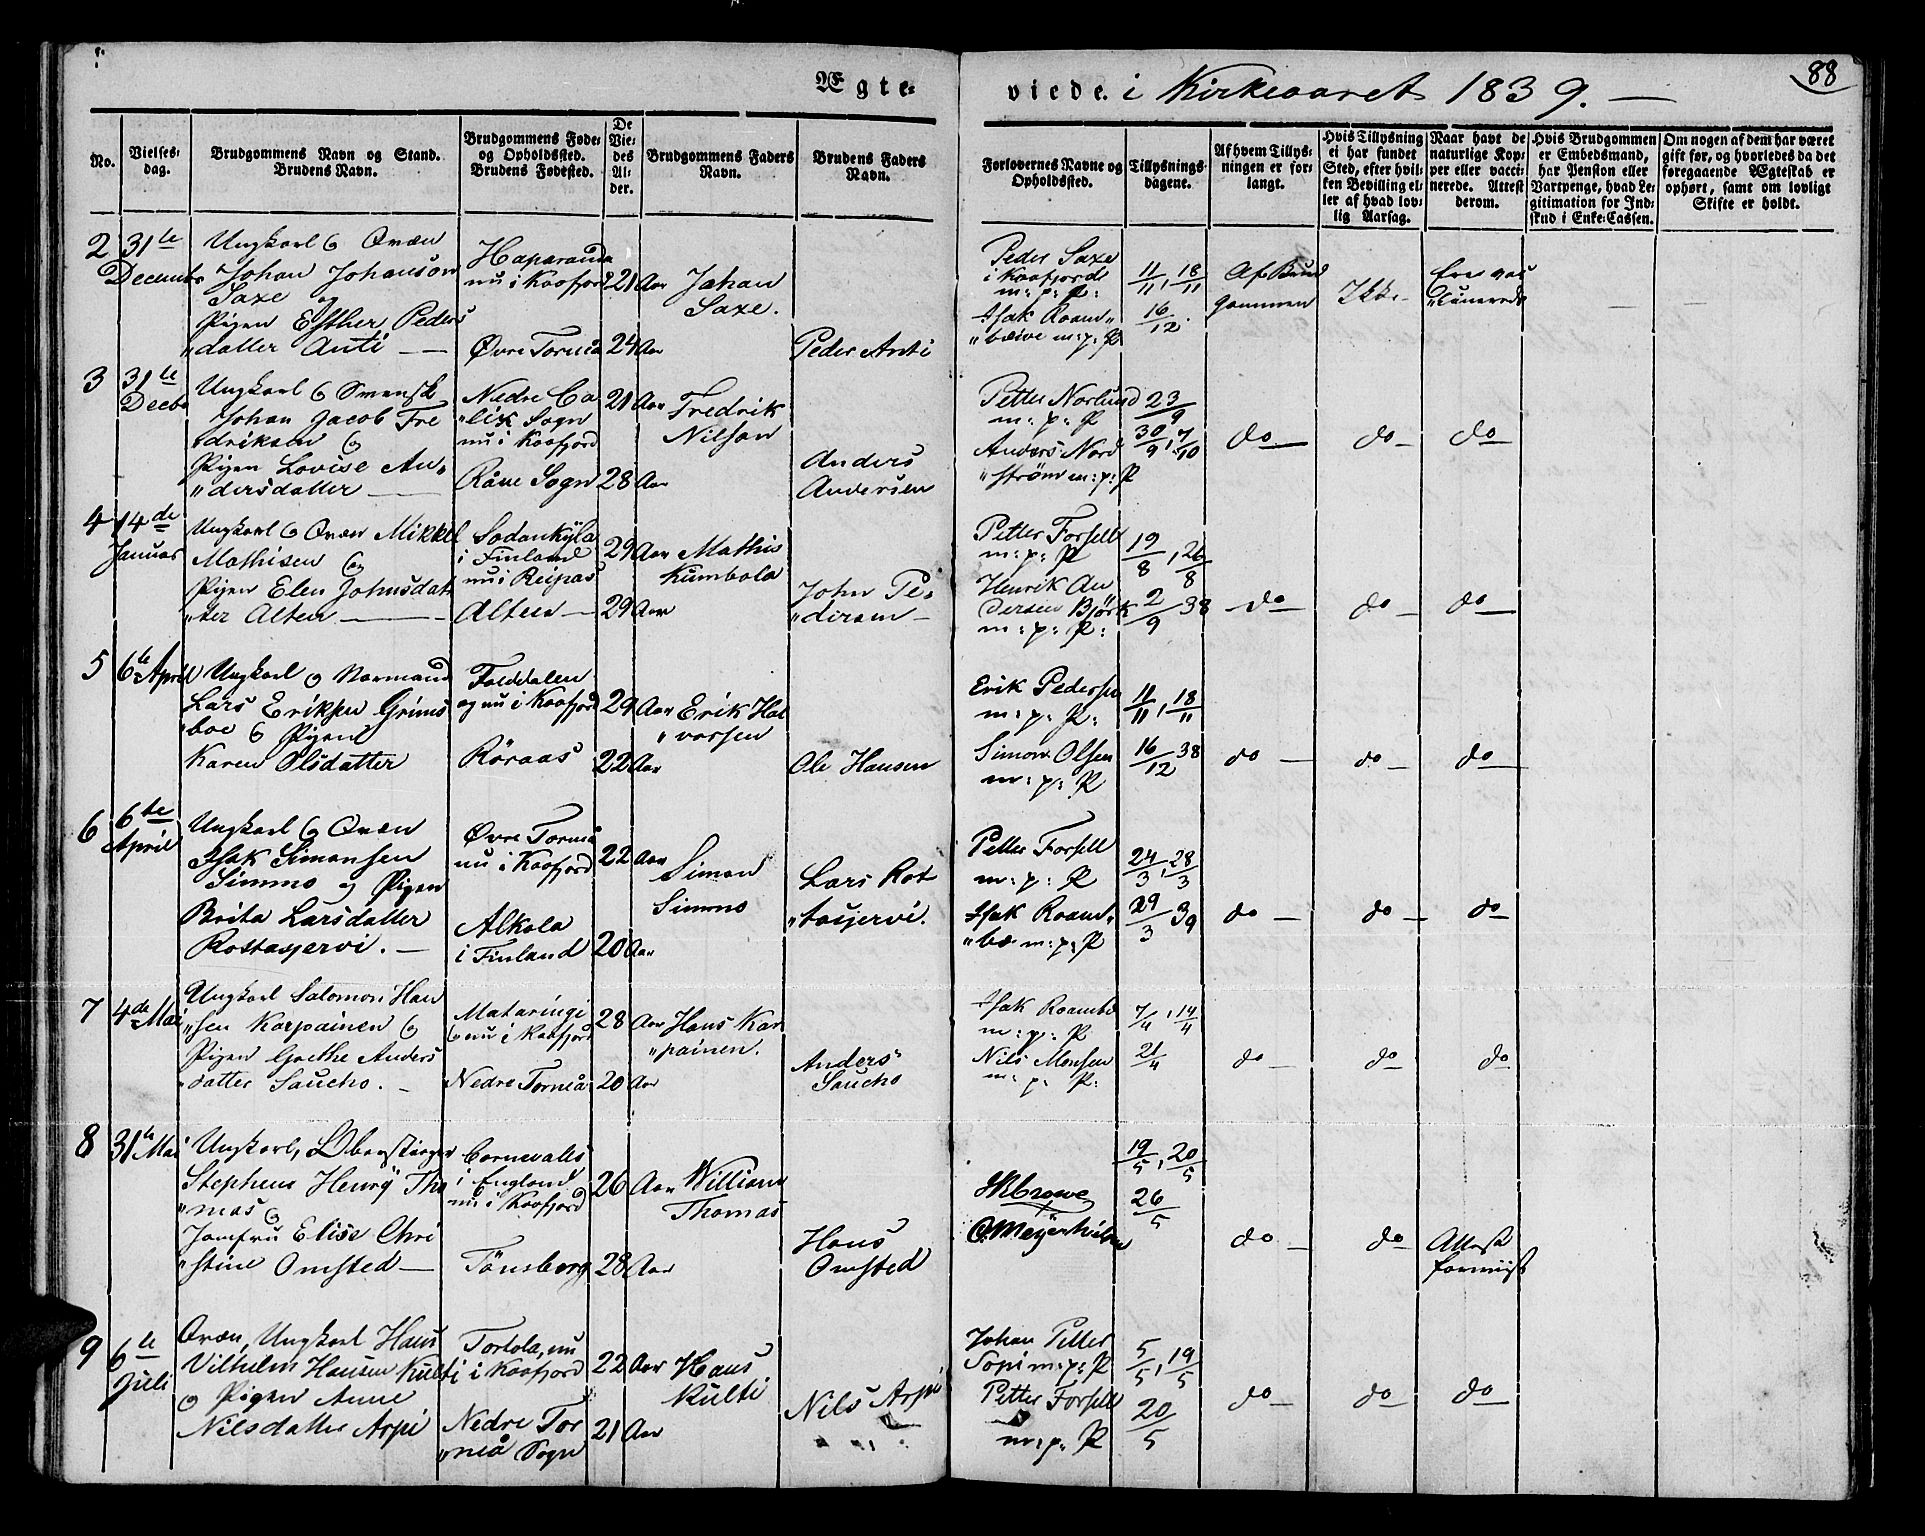 88
Ægte-
viede. i Kirkeaaret 1839.
No.
Vielses-
dag.
Brudgommens Navn og Stand.
Brudens Navn.
Brudgommens Føde-
og Opholdssted.
Brudens Fødested.
De
Vie-
des
Al-
der.
Brudgommens Faders
Navn.
Brudens Faders
Navn.
Forlovernes Navne og
Opholdssted.
Tillysnings-
dagene.
Af hvem Tillys-
ningen er for-
langt.
Hvis Tillysning
ei har fundet
Sted, efter hvil-
ken Bevilling el-
ler af hvad lov-
lig Aarsag.
Naar havt de
naturlige Kop-
per eller vacci-
nerede. Attest
derom.
Hvis Brudgommen
er Embedsmand,
har Pension eller
Vartpenge, hvad Le-
gitimation for Ind-
skud i Enke-Cassen.
Om nogen af dem har været
gift før, og hvorledes da det
foregaaende Ægteskab er
ophørt, samt om lovligt
Skifte er holdt.
2
31te
Decembr
Ungkarl og Qvæn
Johan Johanson
Saxe og
Pigen Esther Peders
"datter Anti —
Haparanda
nu i Kaafjord
Øvre Torneå
21 Aar
24 Aar
Johan
Saxe.
Peder Anti
Peder Saxe
i Kaafjord
m: p: P:
Isak Roam"
"bæive m: p: P
11/11, 18/11
16/12.
Af Brud
gommen
Ikke
3
31te
Decbr
Ungkarl og Svensk
Johan Jacob Fre
driksen og
Pigen Lovise An"
"dersdatter —
Nedre Ca
"lix Sogn
nu i Kaafjord
Råne Sogn
21 Aar
28 Aar
Fredrik
Nilsson
Anders
Andersen
Petter Norlund
m: p: P
Anders Nord
"strøm m: p: P
23/9
30/9, 7/10
do —
do —
do
4
14de
Januar
Ungkarl og Qvæn Mikkel
Mathisen og
Pigen Elen Johnsdat
"ter Alten —
Sodankyla
i Finland
nu i Reipas
Alten —
29 Aar
29 Aar
Mathis
Kumbola
John Pe"
"dersen —
Petter Forsell
m: p: P
Henrik An
dersen Björk
m: p: P:
19/8, 26/8
2/9 38
do
do —
do —
5
6te April
Ungkarl og Normand
Lars Eriksen Grims
"boe og Pigen
Karen Olsdatter
Folddalen
og nu i Kaafjord
Röraas
29 Aar
22 Aar
Erik Hal
"vorsen
Ole Hansen
Erik Pedersen
m: p: P:
Simon Olsen
m: p: P
11/11, 18/11
16/12 38
do —
do —
do
6
6te
April
Ungkarl og Qvæn
Isak Simonsen
Simmo og Pigen
Brita Larsdatter
Rostasjervi. —
Øvre Torneå
nu i Kaafjord
Alkola
i Finland
22 Aar
20 Aar
Simon
Simmo
Lars Rot
"tasjervi.
Petter Forsell
m: p: P
Isak Roam"
"bæ m: p: P
24/3, 28/3
29/3 39
do —
do —
do
7
4de Mai
Ungkarl Salomon Han
"sen Karpainen og
Pigen Grethe Anders
"datter Saucho. —
Mataringi
og nu i Kaafjord
Nedre Torneå
28 Aar
20 Aar
Hans Kar
"painen.
Anders
Saucho
Isak Roambe
m: p: P
Nils Monsen
m: p: P:
7/4, 14/4
21/4
do —
do
do
8
31te Mai
Ungkarl, Oberstiger
Stephens Henry Tho
"mas og
Jomfru Elise Chri
"stine Omsted —
Cornwallis
i England
nu i Kaafjord
Tönsberg
26 Aar
28 Aar
William
Thomas
Hans
Omsted
19/5, 20/5
26/5
do —
do —
Attest
foreviist
9
6te
Juli
Qvæn, Ungkarl Hans
Vilhelm Hansen Kulti
og Pigen Anne
Nilsdatter Arpi
Tortola, nu
i Kaafjord
Nedre Tor
"neå Sogn
22 Aar
21 Aar
Hans
Kulti
Nils Arpi
Johan Petter
Sopi m: p: P
Petter Forsell
m: p: P
5/5, 19/5
20/5
do —
do —
do —